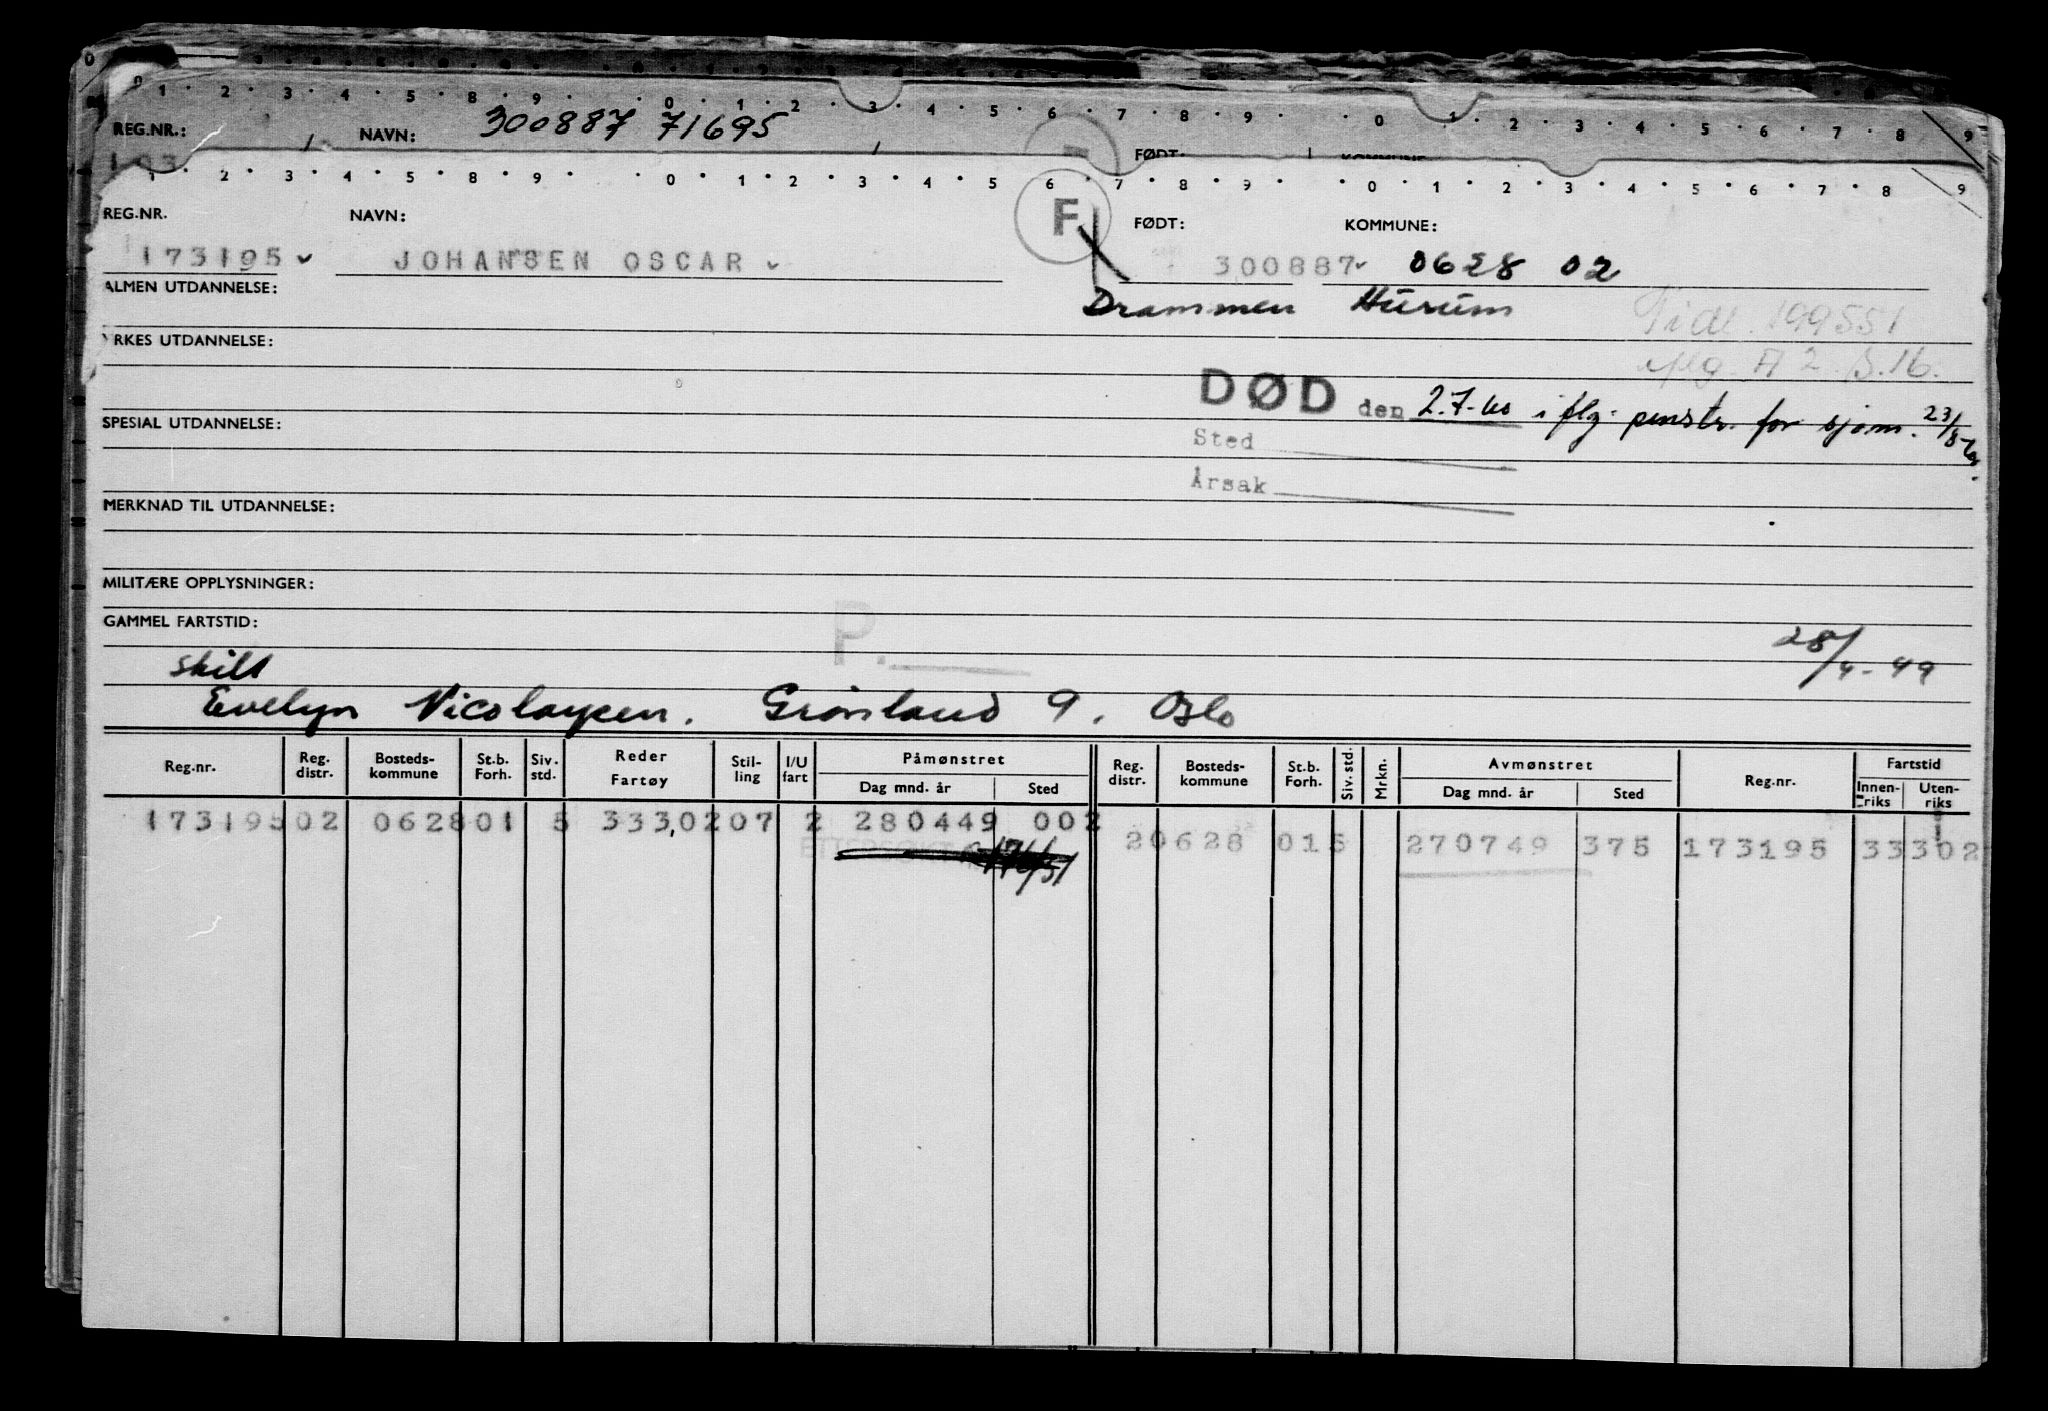 1 2 3 4 5 8 9 0 1 2 3 4 5 6 7 8 9 0 1 2 3 4 5 6 7 8 9
REG.NR.: NAVN: 300887 71695
FØDT:
1 2 3 4 5 8 9 0 1 2 3 4 5 6 7 8 9 0 1 2 3 4 5 6 7 8 9
REG.NR. NAVN: F FØDT: KOMMUNE:
173195 JOHANSEN OSCAR 300887 0628 02
ALMEN UTDANNELSE: Drammen Hurum
Tidl. 199551
YRKES UTDANNELSE:
A 2 S.16.
DØD den 2.7.60 i flg. penstr. for sjøm. 23/8-60.
SPESIAL UTDANNELSE: Sted
Årsak
MERKNAD TIL UTDANNELSE:
MILITÆRE OPPLYSNINGER:
GAMMEL FARTSTID: P.
28/4-49
skilt
Evelyn Nicolaysen. Grønland 9. Oslo
Reg.nr. Reg. distr. Bosteds-kommune St.b. Forh. Siv. std. Reder Fartøy Stil-ling I/U fart Påmønstret Dag mnd. år Sted Reg. distr. Bosteds-kommune St.b. Forh. Siv. std. Mrkn. Avmønstret Dag mnd. år Sted Reg.nr. Fartstid Innen-riks Uten-riks
173195 02 0628 01 5 333,02 07 2 280449 002
20628 015 270749 375 173195 33302